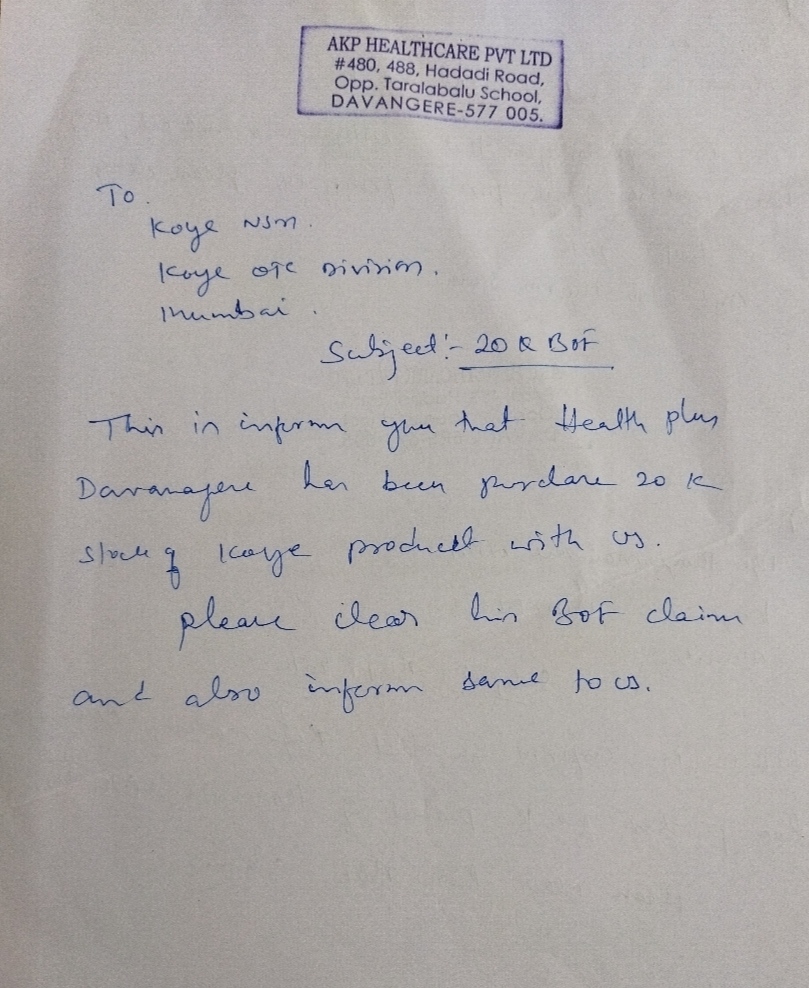 AKP HEALTHCARE PVT LTD
#480, 488, Hadadi Road,
Opp. Taralabalu School,
DAVANGERE-577 005.
To.
Koye NSM.
Koye OTC Division.
Mumbai.
Subject:- 20 K BOF
This is inform you that Health plus
Davanagere has been purchase 20 K
stock of Koye product with us.
please clear his BOF claim
and also inform same to us.